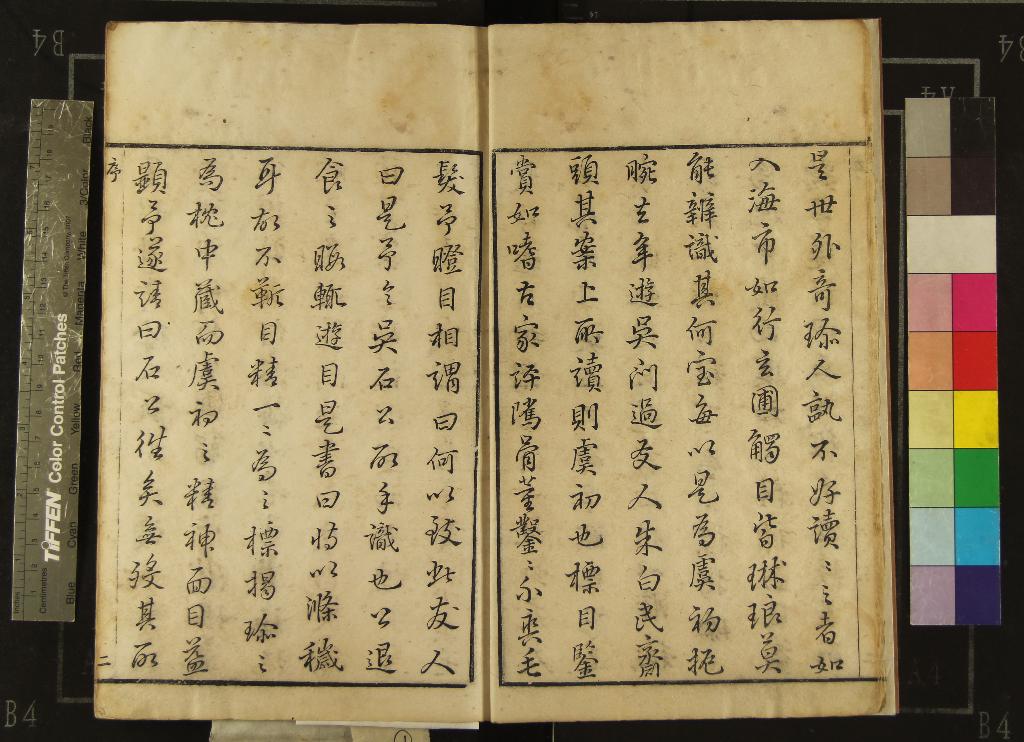 是世外奇珎人孰不好讀〻之者如
入海市如行玄圃觸目皆琳琅莫
能辨識其何宝每以是為虞初扼
腕去年遊吳门過友人朱白民齋
頭其案上所讀則虞初也標目鑒
賞如嗜古家評隲骨董鑿〻不爽毛
髮予瞪目相謂曰何以致此友人
曰是予之吳石公所手識也公退
食之暇輒遊目是書曰将以滌穢
耳故不靳目精一〻為之標揭珎之
為枕中蔵而虞初之精神面目益
顯予遂請曰石公徃矣毋殁其所
序
二
B4
B4
B4
A4
A4
TIFFEN Color Control Patches
© The Tiffen Company, 2007
Inches
Centimetres
Blue
Cyan
Green
Yellow
Red
Magenta
White
3/Color
Black
1